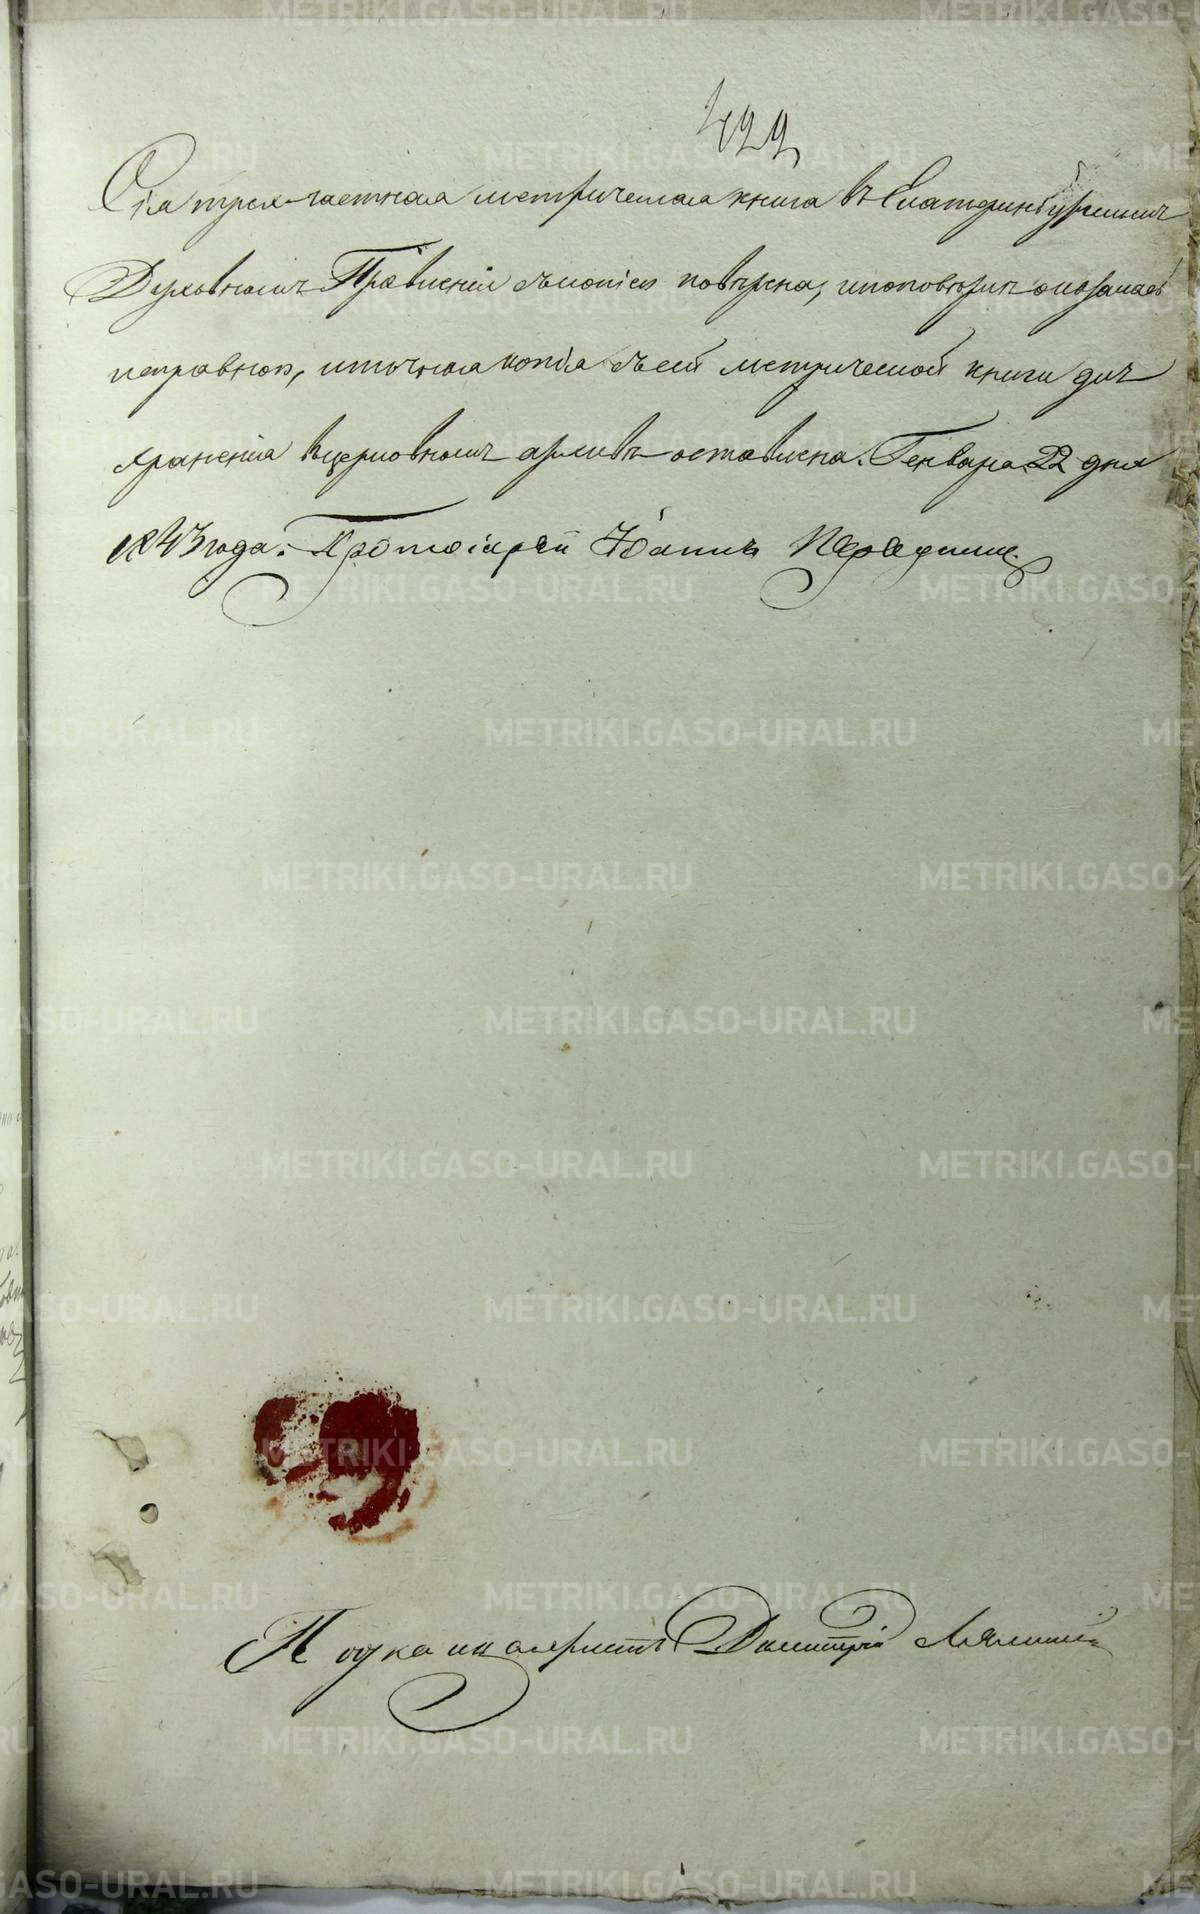 422
Сія трех-частная метрическая книга въ Екатеринбургскомъ
Духовномъ Правленіи съ копіею повѣрена, и по повѣркѣ оказалась
исправною, и точная копія съ сей метрической книги для
храненія въ церковномъ архивѣ оставлена. Генваря 22 дня
1843 года. Протоіерей Іоаннъ
Подканцеляристъ Димитрій
METRIKI.GASO-URAL.RU